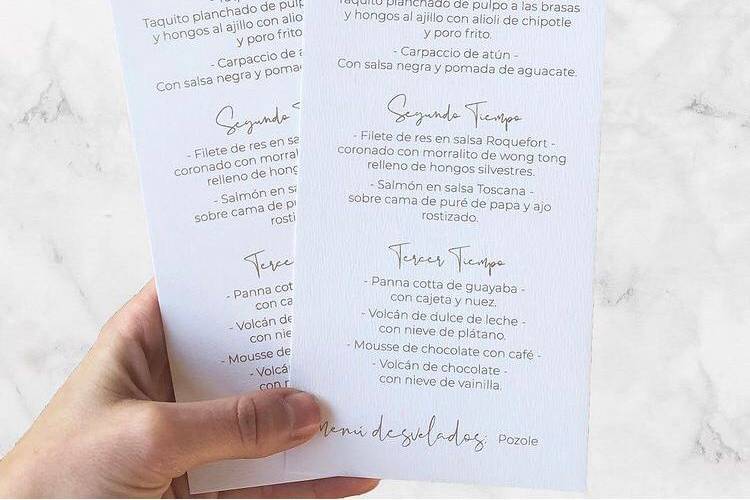 Taquito planchado de pulp
y hongos al ajillo con alioli
y poro frito.
- Carpaccio de a
Con salsa negra y pomad
Segundo T
- Filete de res en sa
coronado con morralit
relleno de hong
- Salmón en sa
sobre cama de pur
rosti
Terce
- Panna cott
con ca
- Volcán de
con nie
- Mousse de
- Volcá
con n
Taquito planchado de pulpo a las brasas
y hongos al ajillo con alioli de chipotle
y poro frito.
- Carpaccio de atún -
Con salsa negra y pomada de aguacate.
Segundo Tiempo
- Filete de res en salsa Roquefort -
coronado con morralito de wong tong
relleno de hongos silvestres.
- Salmón en salsa Toscana -
sobre cama de puré de papa y ajo
rostizado.
Tercer Tiempo
- Panna cotta de guayaba -
con cajeta y nuez.
- Volcán de dulce de leche -
con nieve de plátano.
- Mousse de chocolate con café -
- Volcán de chocolate -
con nieve de vainilla.
menú desvelados: Pozole